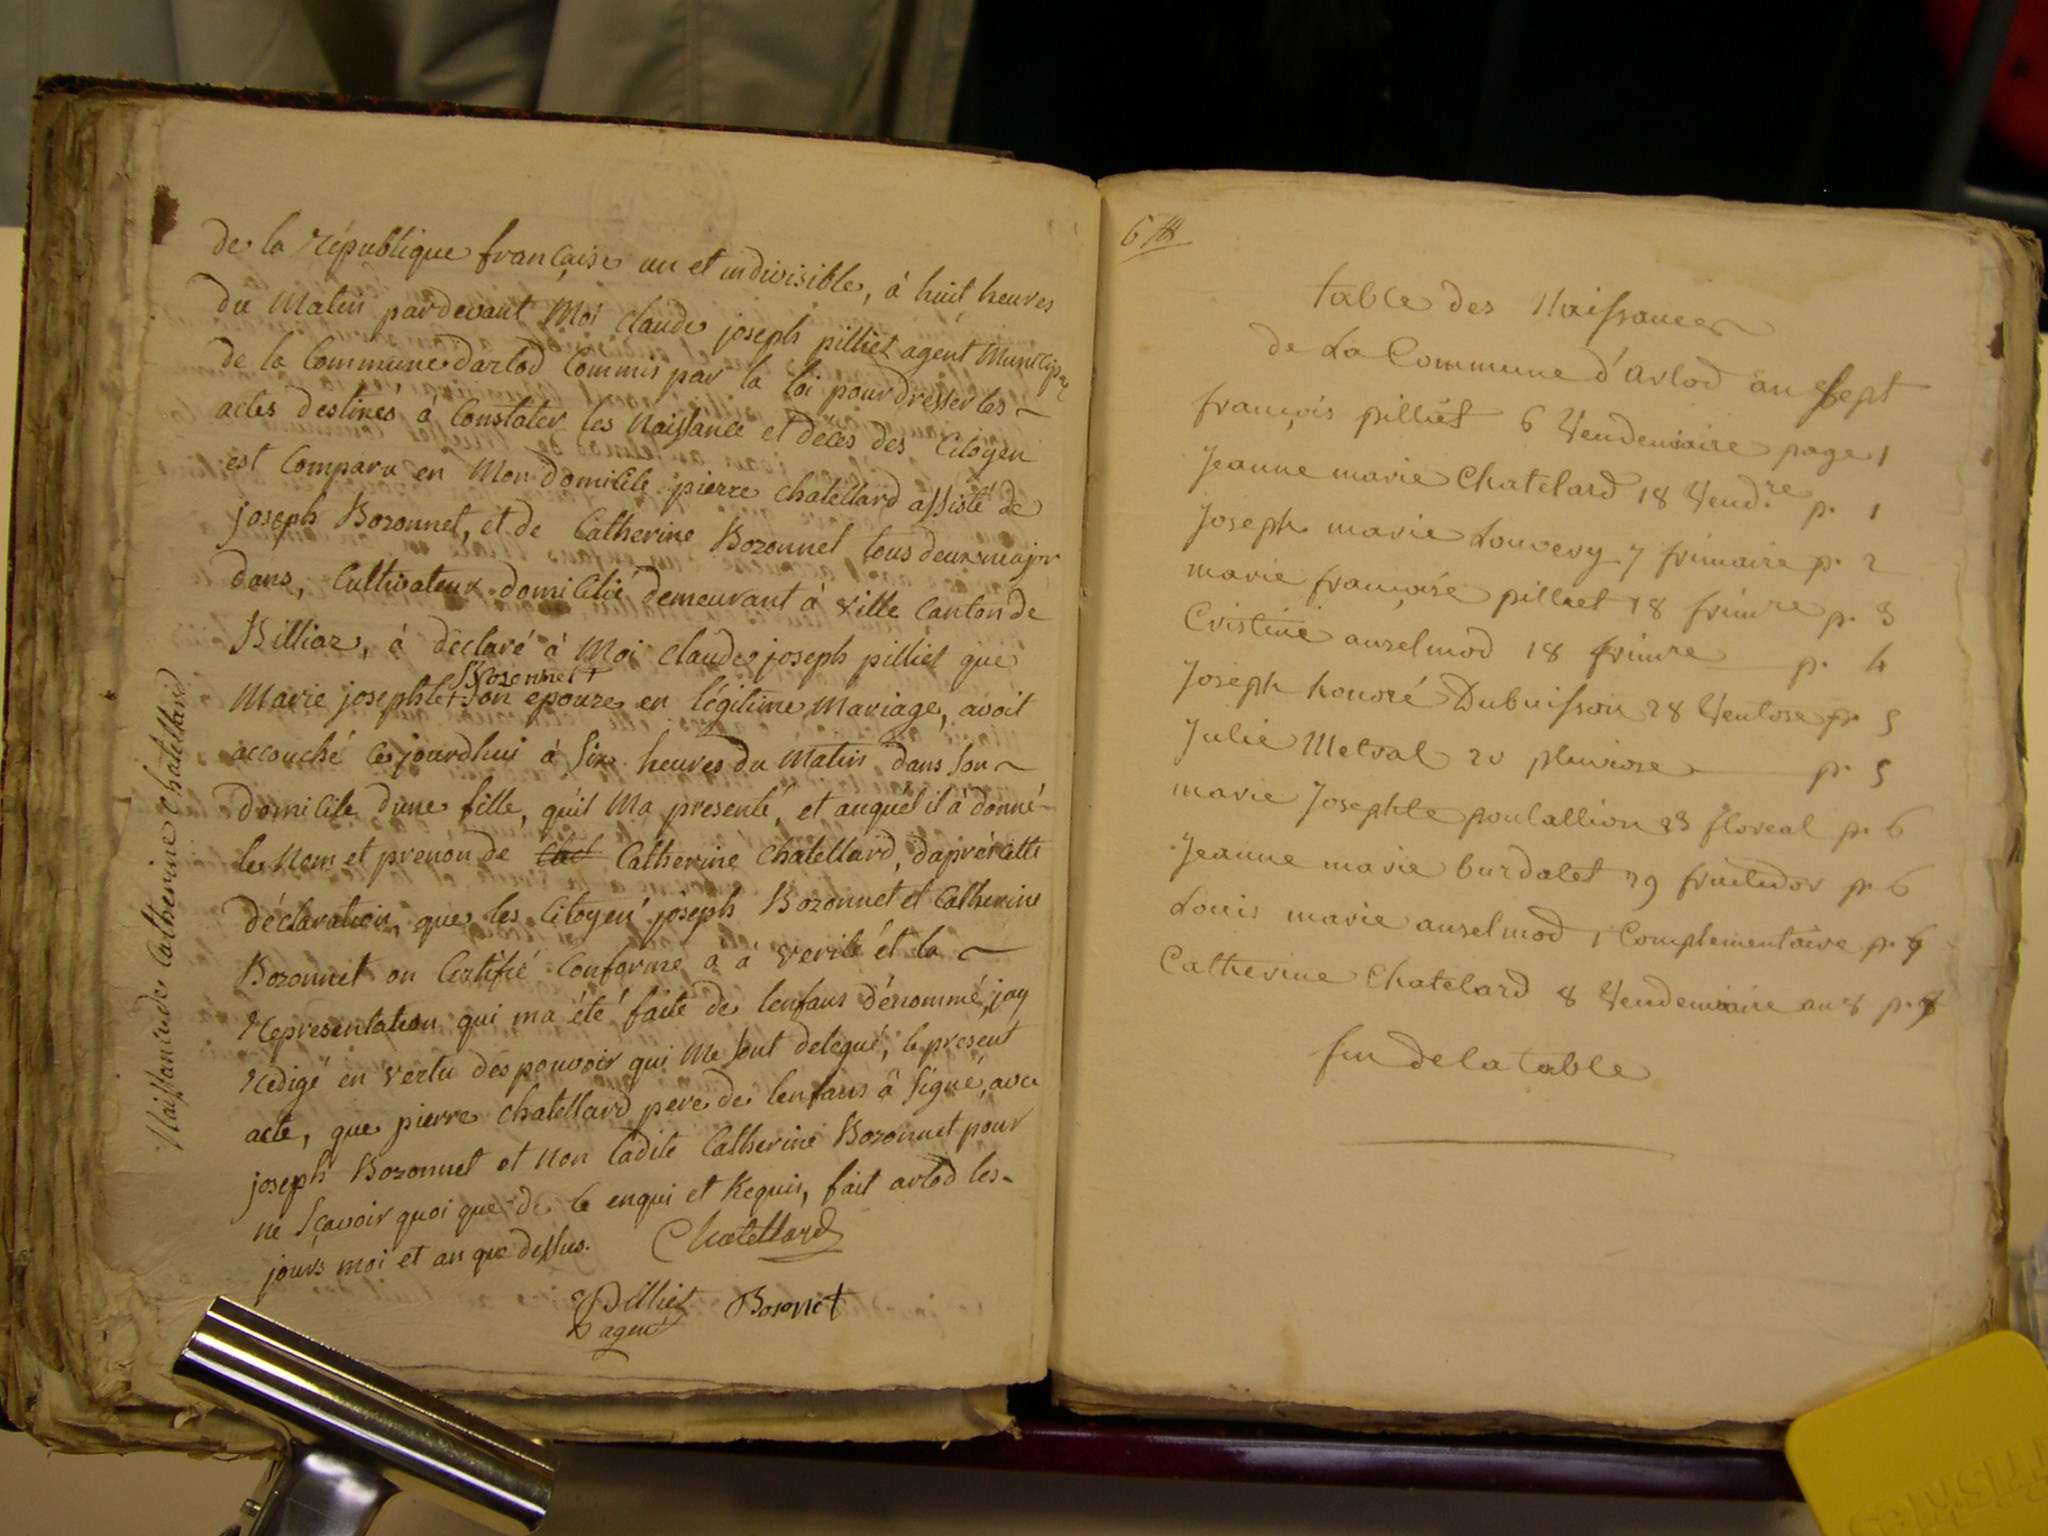 de la République française un et indivisible, à huit heures
du Matin pardevant Moi Claude joseph pilliet agent Municipal
de la Commune darlod Commis par la loi pour dresser les
actes destinés a Constater les Naissance et décès des Citoyen
est Comparu en Mon domicile pierre chatellard assisté de
joseph Bozonnet, et de Catherine Bozonnet tous deux major
dans, Cultivateur domicilié demeurant à ville Canton de
Billiaz, à déclaré à Moi claude joseph pilliet que
Bosonnet +
Marie josephte + Son epouze en légitime Mariage, avoit
accouché cejourdhui à Six heures du Matin dans Son
domicile dune fille, qu'il Ma presenté, et auquél il à donné
le Nom et prenon de Catherine Chatellard, daprér cette
déclaration, que les Citoyen joseph Bozonnet et Catherine
Bozonnet on Certifié Conforme a à verité et la
Representation qui ma été faite de lenfans dénommé, jay
Redigé en vertu des pouvoir qui Me sont delegué, le present
acte, que pierre chatellard pere de lenfans â Signé, avec
joseph Bozonnet et Non ladite Catherine Bozonnet pour
ne Sçavoir quoi que de Ce enqui et Requis, fait arlod les
jours moi et an que dessus.
Chatellard
Pilliet
agent
Bosonet
Naissance de Catherine Chatellard
6
table des Naissances
de La Commune d'arlod an Sept
françois pilliet 6 Vendemiaire page 1
Jeanne marie Chatelard 18 Vend.re p. 1
Joseph marie Louvery 7 frimaire p. 2
marie françoise pilliet 18 frimre p. 3
Cristine anselmod 18 frimre p. 4
Joseph honoré Dubuisson 28 Ventose p. 5
Julie Metral 20 pluviose p. 5
marie Josephte poulallion 23 floreal p. 6
Jeanne marie burdalet 29 fruitidor p. 6
Louis marie anselmod 1 Complementaire p. 6
Catherine Chatelard 8 Vendemiaire an 8 p. 7
fin de la table